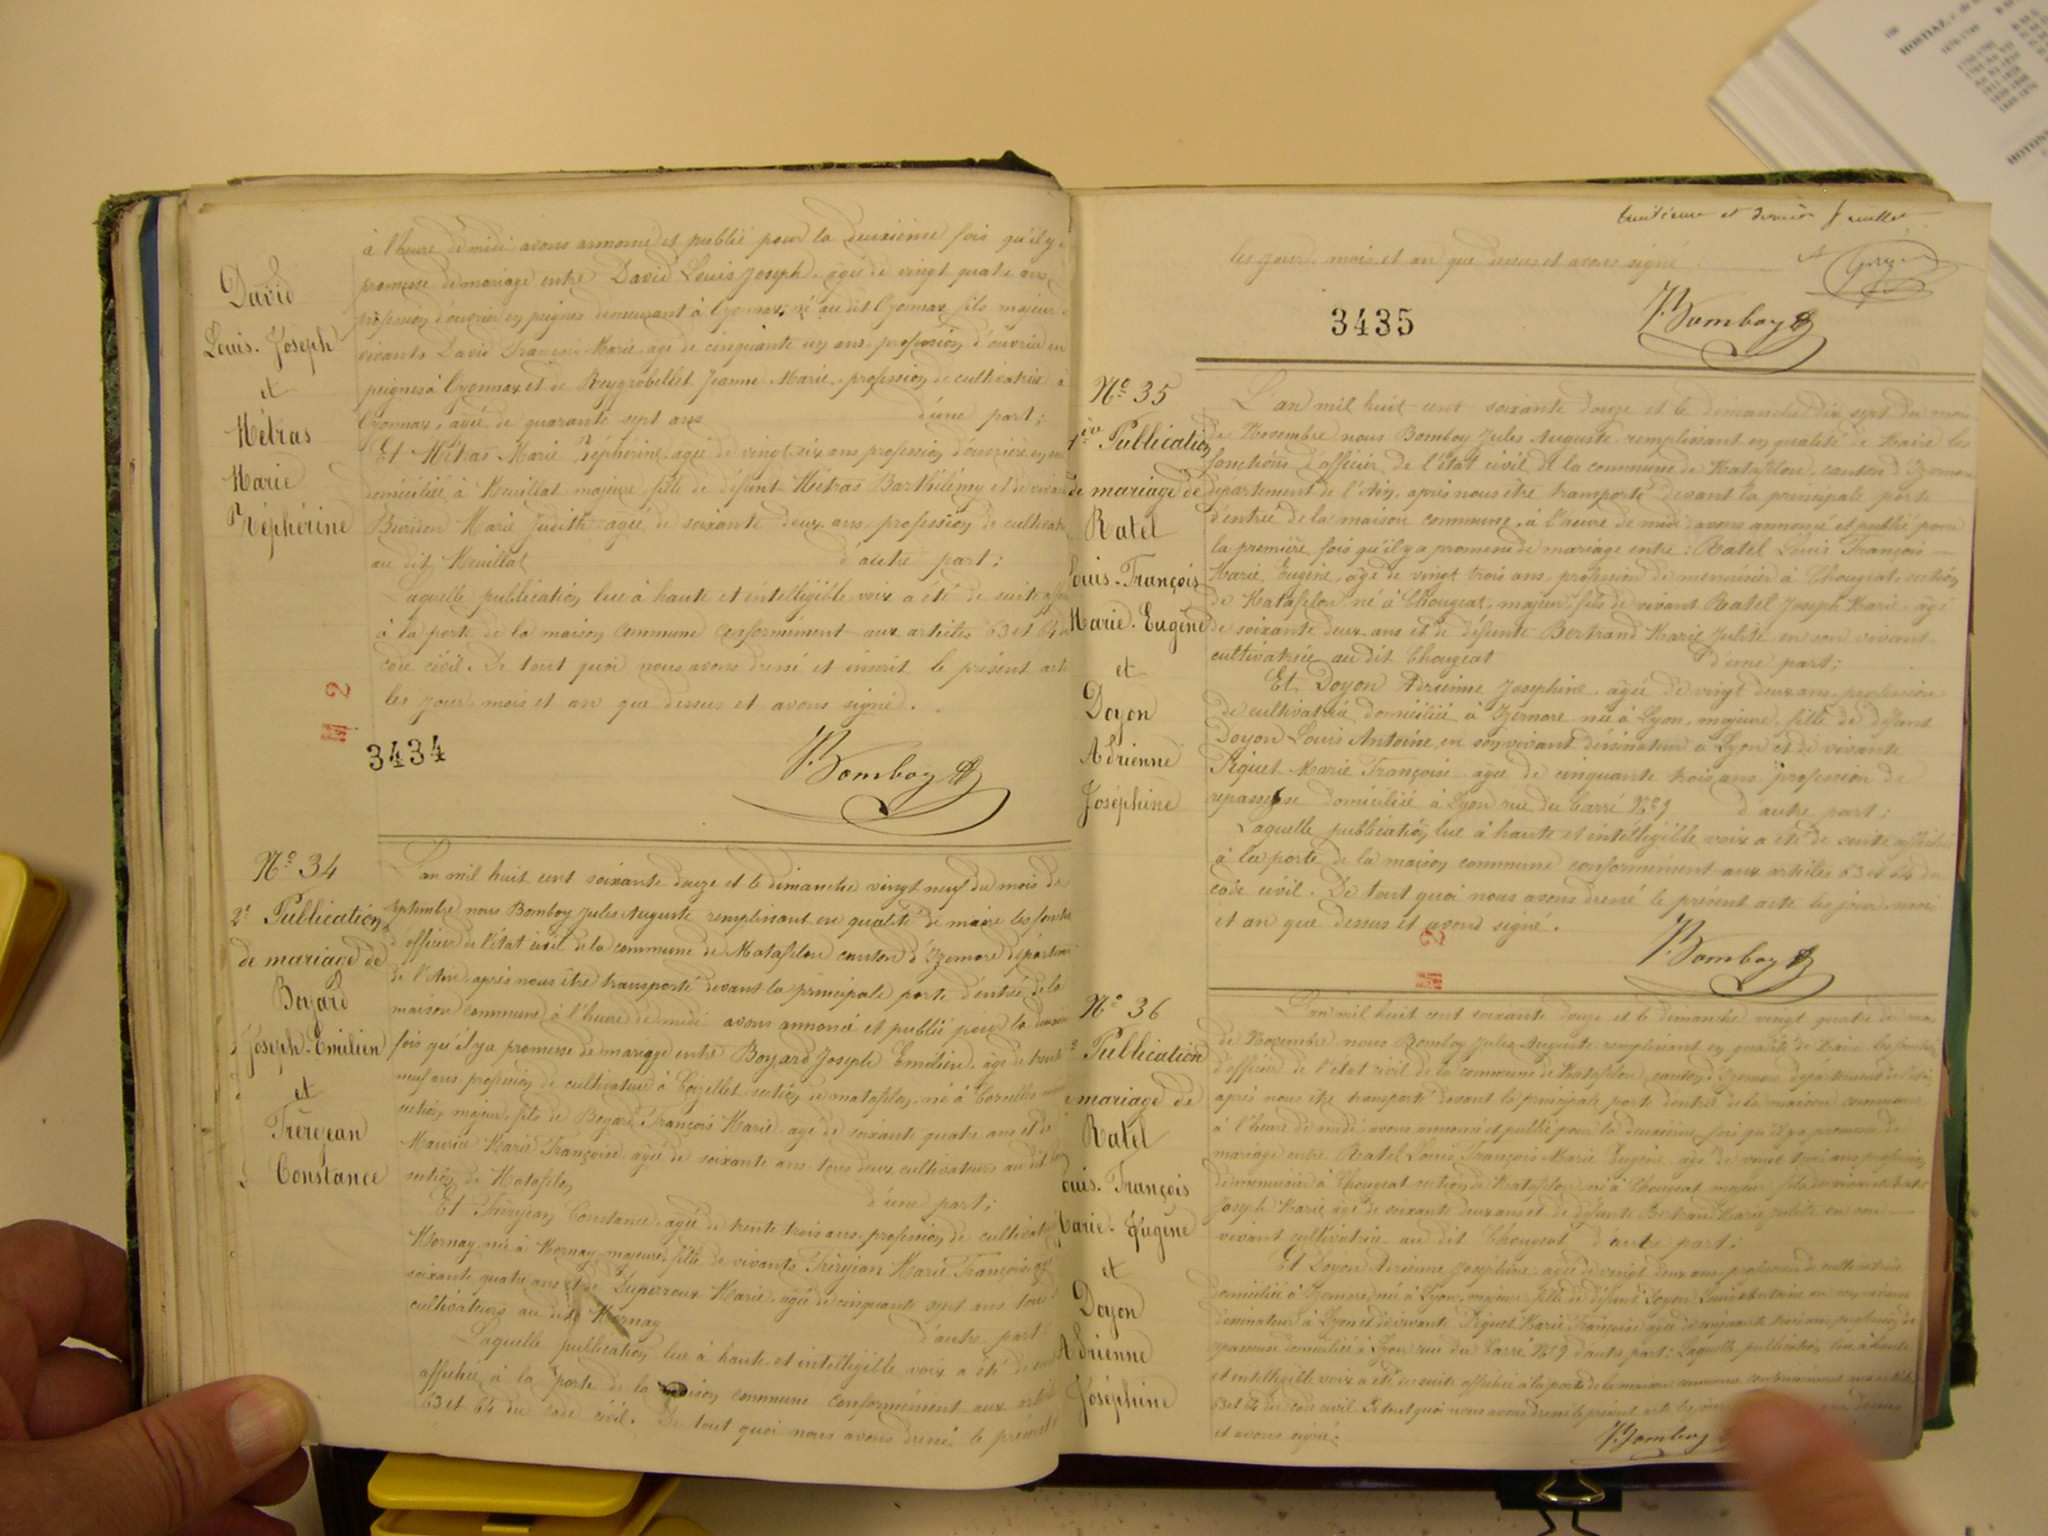 à l'heure de midi avons annoncé et publié pour la deuxième fois qu'il y a
promesse de mariage entre David Louis Joseph, âgé de vingt quatre ans,
profession d'ouvrier en peignes demeurant à Oyonnax, né au dit Oyonnax, fils majeur de
vivants David François Marie, âgé de cinquante un ans, profession d'ouvrier en
peignes à Oyonnax et de Reygrobellet Jeanne Marie, profession de cultivatrice à
Oyonnax, âgée de quarante sept ans d'une part;
Et Métras Marie Zéphérine, âgée de vingt six ans profession d'ouvrière en
domiciliée à Heuillat majeure, fille de défunt Métras Barthélémy et de vivante
Marie Judith âgée de soixante deux ans, profession de cultivatrice
au dit Heuillat d'autre part;
Laquelle publication lue à haute et intelligible voix a été de suite
à la porte de la maison commune conformément aux articles 63 et 64 du
code civil. De tout quoi nous avons dressé et inscrit le présent acte
les jour, mois et an que dessus et avons signé.
David
Louis-Joseph
et
Métras
Marie
Zéphérine
2
3434
J. Bomboy
N° 34
2e Publication
de mariage de
Boyard
Joseph-Emilien
et
Trérejean
Constance
L'an mil huit cent soixante douze et le dimanche vingt neuf du mois de
septembre nous Bomboy Jules Auguste remplissant en qualité de maire les fonctions
d'officier de l'état civil de la commune de Matafelon canton d'Izernore département
de l'Ain, après nous être transporté devant la principale porte d'entrée de la
maison commune à l'heure de midi avons annoncé et publié pour la deuxième
fois qu'il y a promesse de mariage entre Boyard Joseph Emilien, âgé de trente
neuf ans profession de cultivateur à Coizellet section de matafelon, né à
section, majeur, fils de Boyard François Marie âgé de soixante quatre ans et de
Marie Françoise âgée de soixante ans tous deux cultivateurs au dit
section de Matafelon d'une part;
Et Trérejean Constance, âgée de trente trois ans, profession de cultivatrice
Mornay née à Mornay majeure, fille de vivants Trérejean Marie François âgé
soixante quatre ans et de Marie, âgée de cinquante sept ans tous
cultivateurs au dit Mornay d'autre part
Laquelle publication lue à haute et intelligible voix a été de suite
affichée à la porte de la maison commune conformément aux articles
63 et 64 du code civil. De tout quoi nous avons dressé le présent
huitième et dernier feuillet
les jour, mois et an que dessus et avons signé
3435
J. Bomboy
N° 35
1ère Publication
de mariage de
Ratel
Louis-François
Marie-Eugène
et
Doyon
Adrienne
Joséphine
L'an mil huit cent soixante douze et le dimanche dix sept du mois
de Novembre nous Bomboy Jules Auguste remplissant en qualité de Maire les
fonctions d'officier de l'état civil de la commune de Matafelon, canton d'Izernore
département de l'Ain, après nous être transporté devant la principale porte
d'entrée de la maison commune, à l'heure de midi avons annoncé et publié pour
la première fois qu'il y a promesse de mariage entre: Ratel Louis François
Marie Eugène, âgé de vingt trois ans, profession de menuisier à Chougeat, section
de Matafelon né à Chougeat, majeur, fils de vivant Ratel Joseph Marie, âgé
de soixante deux ans et de défunte Bertrand Marie Julite en son vivant
cultivatrice au dit Chougeat d'une part;
Et Doyon Adrienne Josephine, âgée de vingt deux ans, profession
de cultivatrice domiciliée à Izernore née à Lyon, majeure, fille de défunt
Doyon Louis Antoine, en son vivant dessinateur à Lyon et de vivante
Piquet Marie Françoise âgée de cinquante trois ans profession de
repasseuse domiciliée à Lyon rue du Carré N° 9 d'autre part;
Laquelle publication lue à haute et intelligible voix a été de suite affichée
à la porte de la maison commune conformément aux articles 63 et 64 du
code civil. De tout quoi nous avons dressé le présent acte les jour, mois
et an que dessus et avons signé.
2
J. Bomboy
N° 36
Publication
mariage de
Ratel
Louis-François
Marie-Eugène
et
Doyon
Adrienne
Joséphine
L'an mil huit cent soixante douze et le dimanche vingt quatre du mois
de Novembre nous Bomboy Jules Auguste remplissant en qualité de Maire les fonctions
d'officier de l'état civil de la commune de Matafelon, canton d'Izernore département de l'Ain
après nous être transporté devant la principale porte d'entrée de la maison commune
à l'heure de midi avons annoncé et publié pour la deuxième fois qu'il y a promesse de
mariage entre Ratel Louis François Marie Eugène, âgé de vingt trois ans profession
de menuisier à Chougeat section de Matafelon né à Chougeat majeur fils de vivant Ratel
Joseph Marie, âgé de soixante deux ans et de défunte Bertrand Marie Julite en son
vivant cultivatrice au dit Chougeat d'autre part;
Et Doyon Adrienne Joséphine, âgée de vingt deux ans profession de cultivatrice
domiciliée à Izernore née à Lyon, majeure fille de défunt Doyon Louis Antoine en son vivant
dessinateur à Lyon et de vivante Piquet Marie Françoise âgée de cinquante trois ans profession de
repasseuse domiciliée à Lyon rue du Carré N° 9 d'autre part; Laquelle publication lue à haute
et intelligible voix a été de suite affichée à la porte de la maison commune conformément aux articles
63 et 64 du code civil. De tout quoi nous avons dressé le présent acte les jour
et avons signé.
J. Bomboy